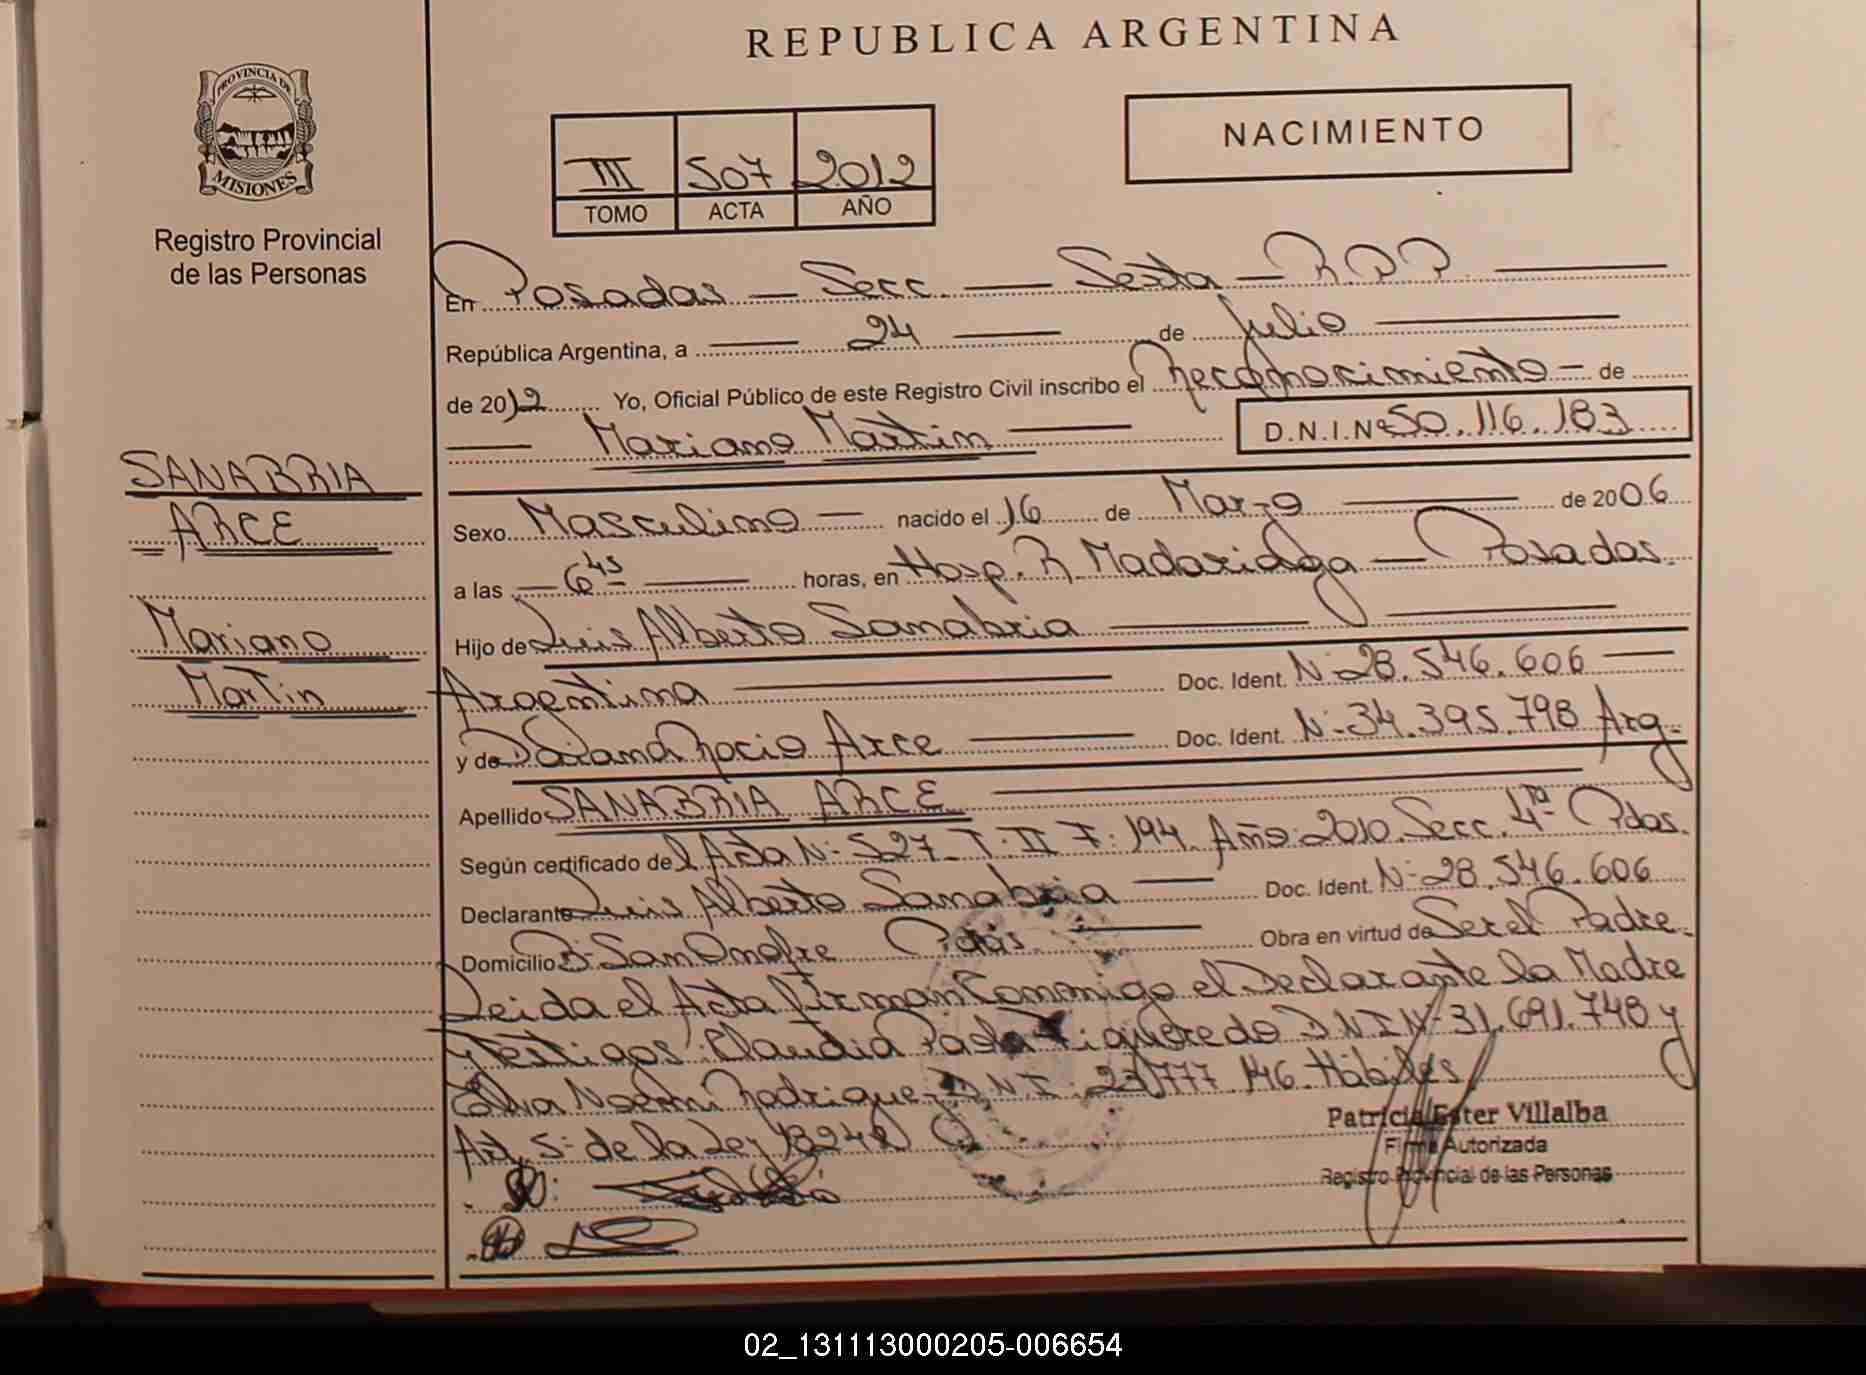 REPUBLICA ARGENTINA
PROVINCIA DE
MISIONES
Registro Provincial
de las Personas
III 507 2012
TOMO ACTA AÑO
NACIMIENTO
En Posadas — Secc. — Sexta — R.P.P.
República Argentina, a 24 de Julio
de 2012 Yo, Oficial Público de este Registro Civil inscribo el Reconocimiento — de
Mariano Martin D.N.I.Nº 50.116.183
SANABRIA
ARCE
Mariano
Martin
Sexo Masculino — nacido el 16 de Marzo de 2006
a las — 6 45 horas, en Hosp. R. Madariaga — Posadas.
Hijo de Luis Alberto Sanabria
Argentina Doc. Ident. N: 28.546.606
y de Daiana Rocio Arce Doc. Ident. N: 34.395.798 Arg.
Apellido SANABRIA ARCE
Según certificado del Acta N: 527 T: II F: 194 Año: 2010. Secc. 4ta Pdas.
Declarante Luis Alberto Sanabria Doc. Ident. N: 28.546.606
Domicilio B: San Onofre Pdas Obra en virtud de Ser el Padre.
Leida el Acta firman Conmigo el Declarante la Madre
y Testigos: Claudia Paola Figueredo DNI N: 31.691.748 y
Elva Noemi Rodriguez D.N.I. 23.777.146 Hábiles
Art. 5: de la Ley 18248
Patricia Ester Villalba
Firma Autorizada
Registro Provincial de las Personas
02_131113000205-006654